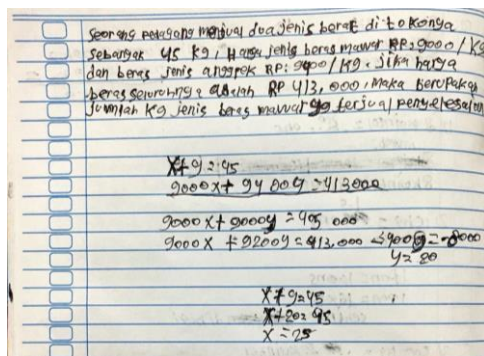 Seorang pedagang menjual dua jenis beras di tokonya
sebanyak 45 kg, Harga jenis beras mawar RP: 9000 / kg
dan beras jenis anggrek RP: 9400 / kg. Jika harga
beras seluruhnya adalah RP 413,000, Maka berapakah
Jumlah kg jenis beras mawar yg terjual penyelesaian
X+y=45
9000X+ 9400y =413000
9000X+9000y = 405 000
9000X + 9200y = 413,000 -400y = -8000
y= 20
X+y=45
X+20=45
X =25